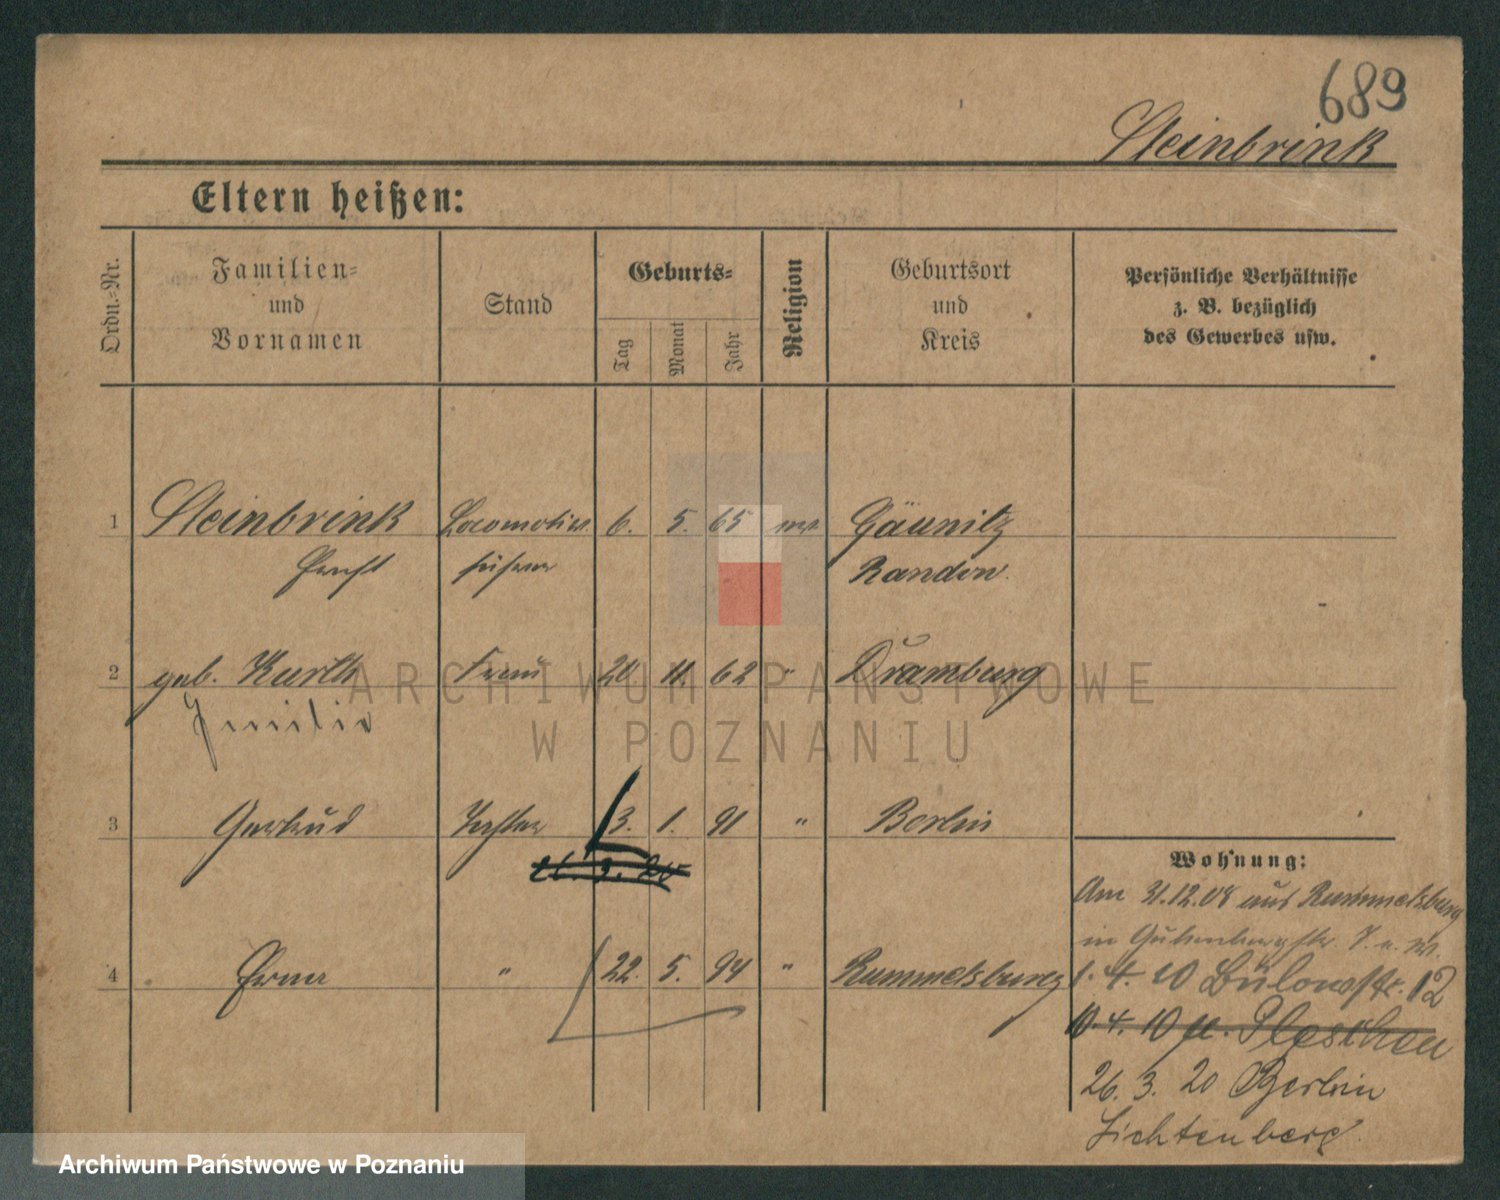 689
Steinbrink
Eltern heißen:
Ordn.-Nr.
Familien-
und
Vornamen
Stand
Geburts-
Tag
Monat
Jahr
Religion
Geburtsort
und
Kreis
Persönliche Verhältnisse
z. B. bezüglich
des Gewerbes usw.
1 Steinbrink Locomotiv. 6. 5. 65
führer Randow.
2 geb. Kurth Frau 20 11. 62 " Dramburg
Emilie
3 Gertrud Tochter 3. 1. 91 " Berlin
26. 3. 20
4 Erna " 22. 5. 94 " Rummelsburg
Wohnung:
Am 31.12.08 aus Rummelsburg
in Gutenbergstr.
1. 4. 10 Bülowstr. 12
10. 4. 10 Pleschen
26. 3. 20 Berlin
Lichtenberg.
ARCHIWUM PAŃSTWOWE
W POZNANIU
Archiwum Państwowe w Poznaniu